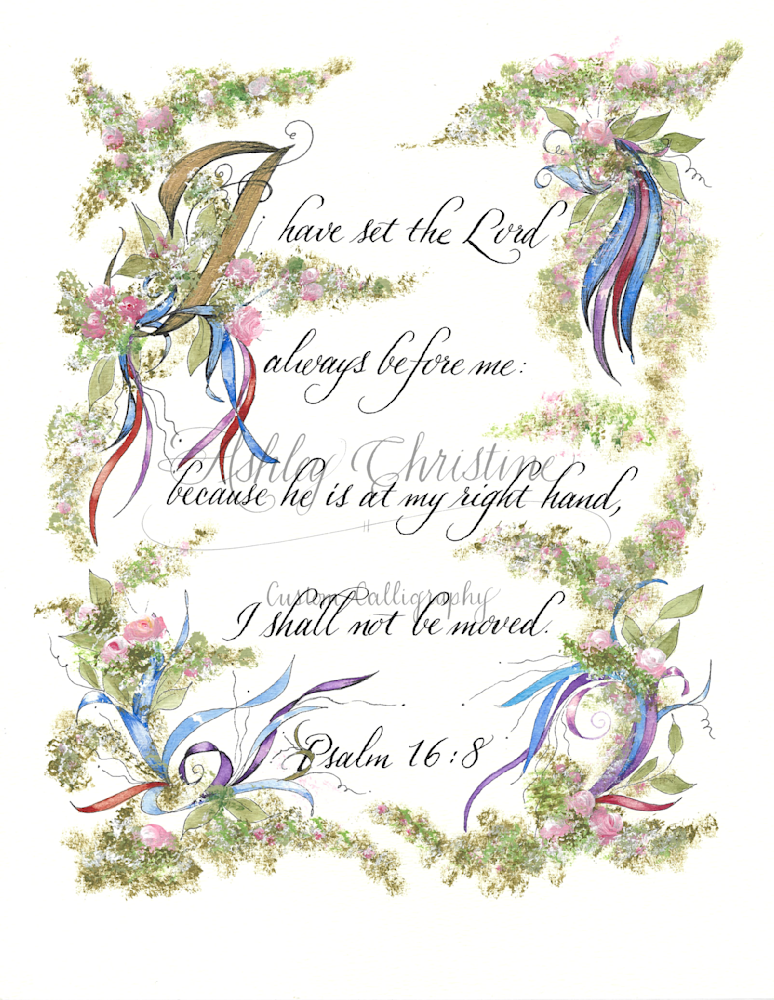 I have set the Lord
always before me:
Ashley Christine
because he is at my right hand,
Custom Calligraphy
I shall not be moved.
Psalm 16:8